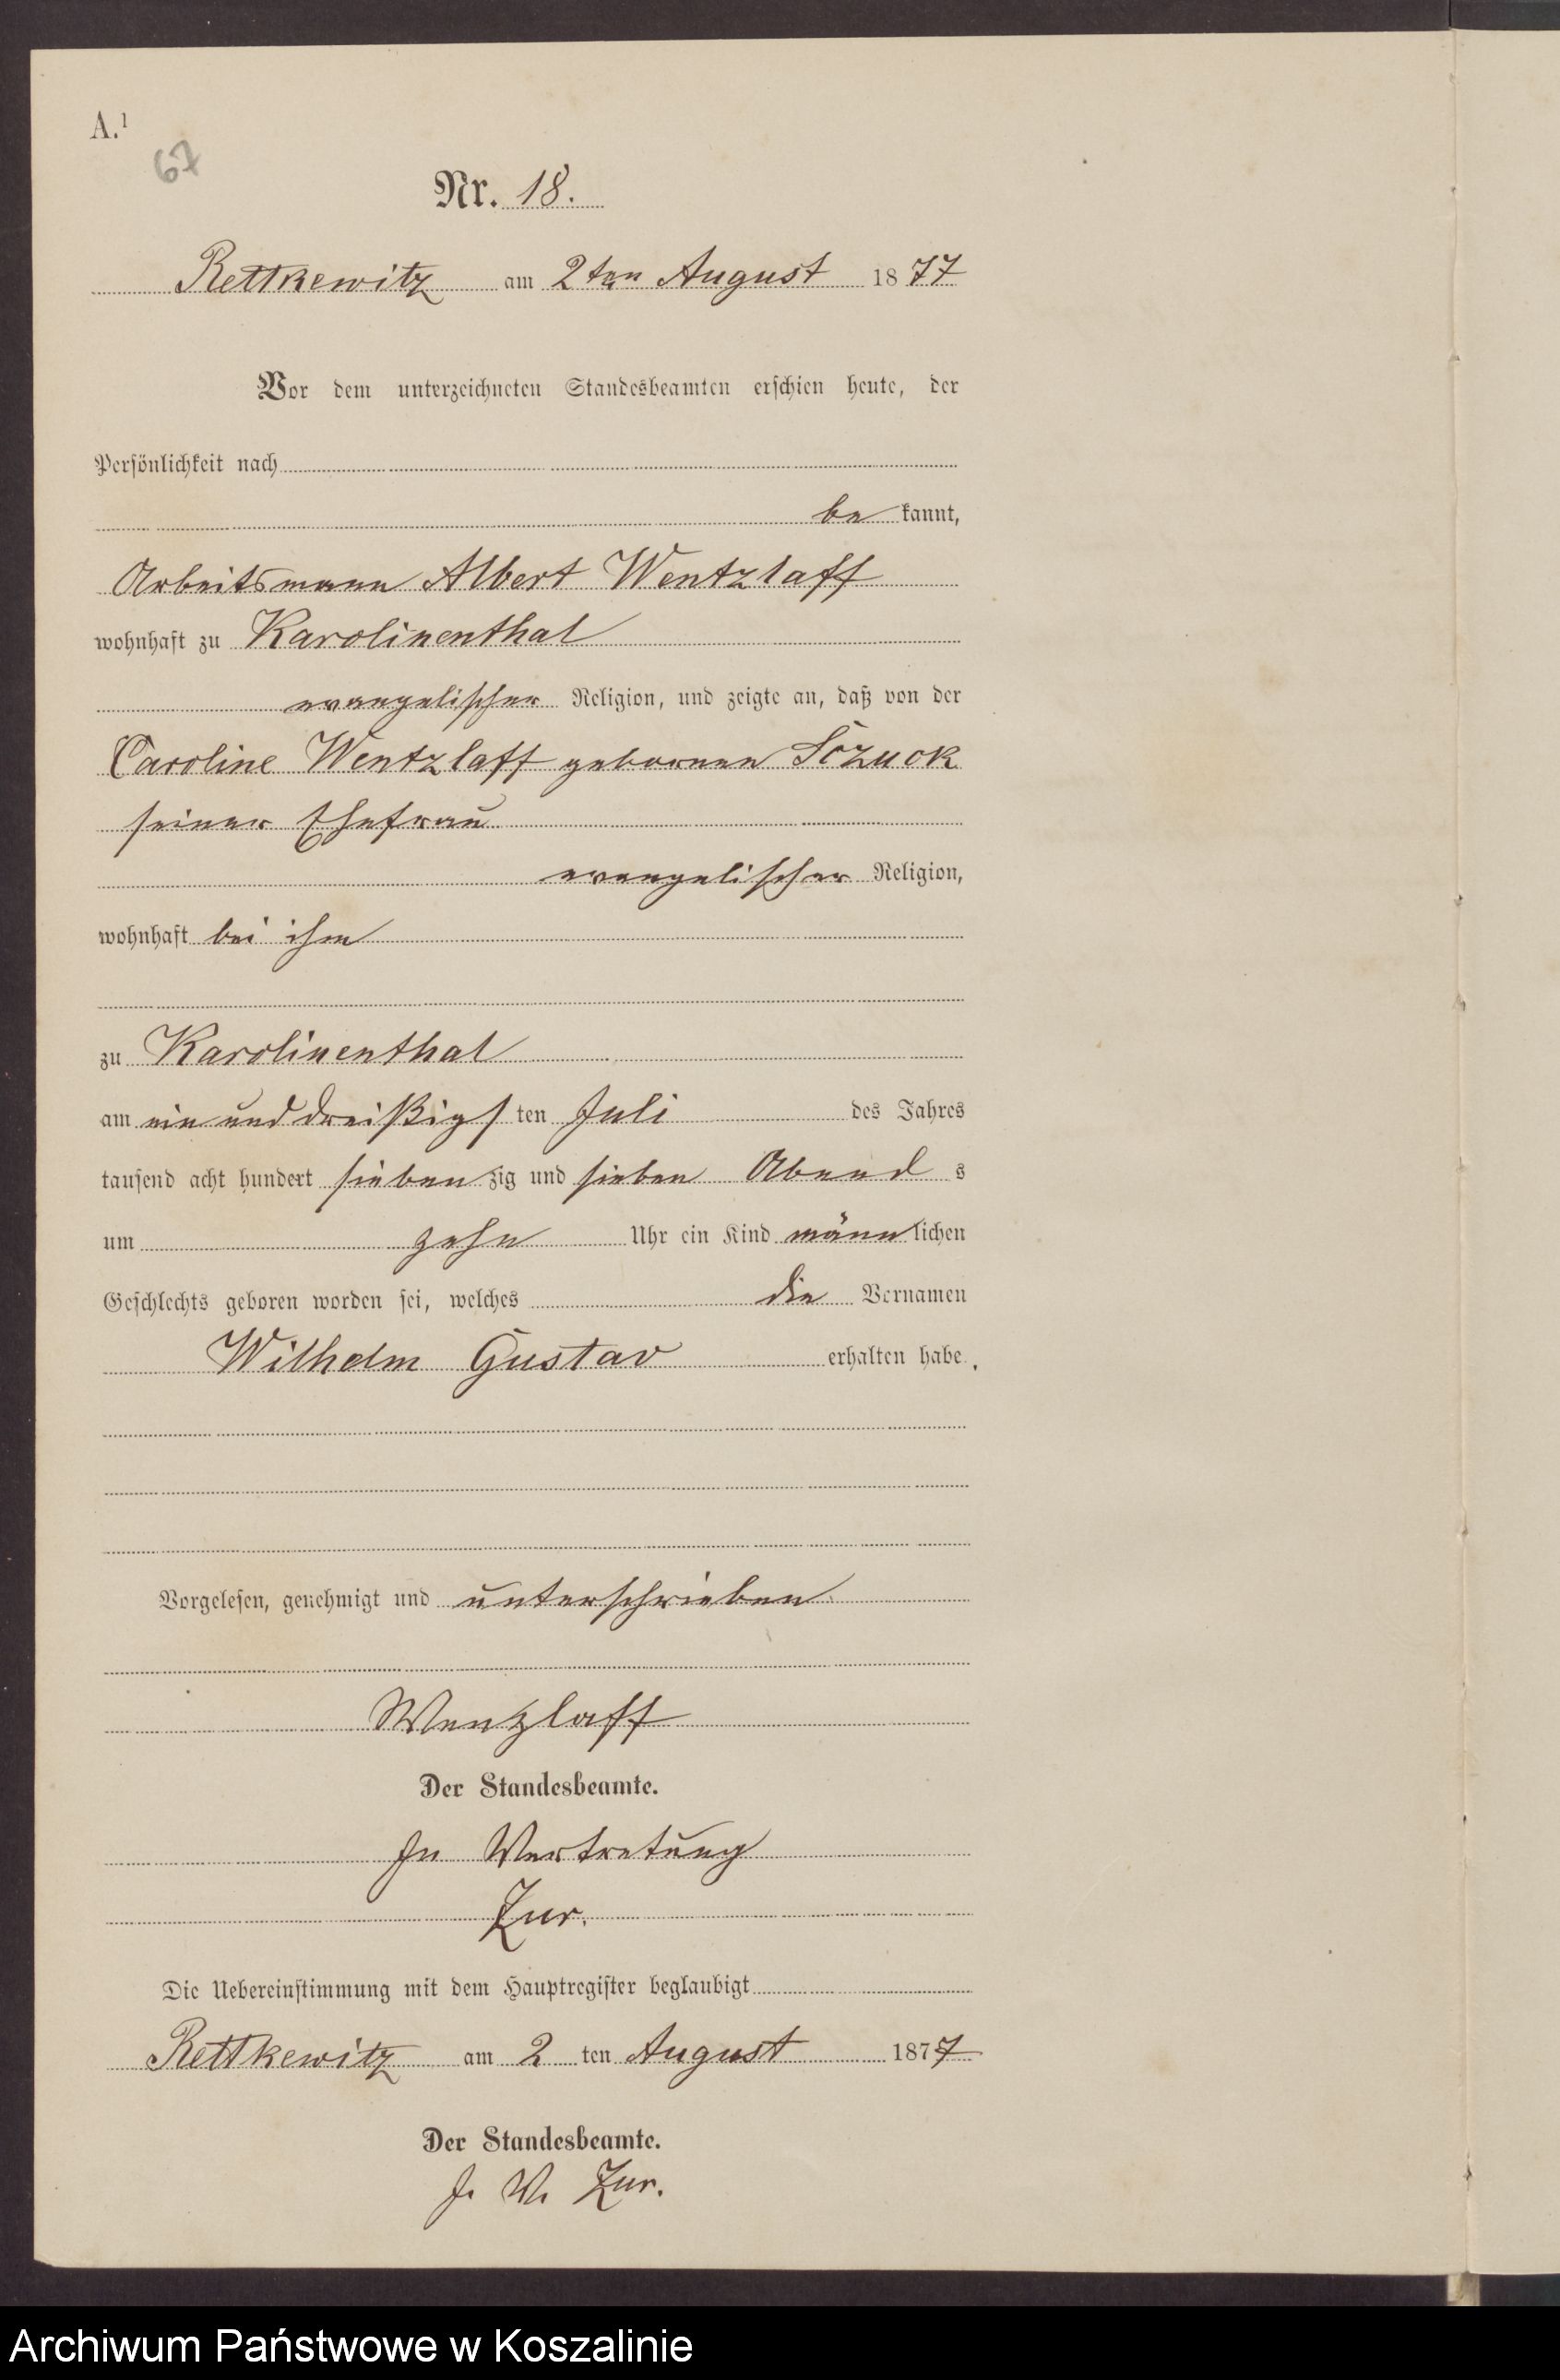 A.¹
67
Nr. 18.
Rettkewitz am 2ten August 1877
Vor dem unterzeichneten Standesbeamten erschien heute, der
Persönlichkeit nach
be kannt,
Arbeitsmann Albert Wentzlaff
wohnhaft zu Karolinenthal
evangelischer Religion, und zeigte an, daß von der
Caroline Wentzlaff gebornen
seiner Ehefrau
evangelischer Religion,
wohnhaft bei ihm
zu Karolinenthal
am ein und dreißigs ten Juli des Jahres
tausend acht hundert sieben zig und sieben Abend s
um zehn Uhr ein Kind männ lichen
Geschlechts geboren worden sei, welches die Vornamen
Wilhelm Gustav erhalten habe.
Vorgelesen, genehmigt und unterschrieben.
Wenzlaff
Der Standesbeamte.
In Vertretung
Zur.
Die Uebereinstimmung mit dem Hauptregister beglaubigt
Rettkewitz am 2 ten August 1877
Der Standesbeamte.
I. V. Zur.
Archiwum Państwowe w Koszalinie